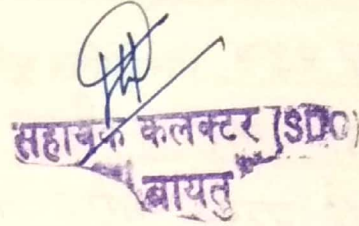 सहायक कलक्टर (SDO)
बायतु